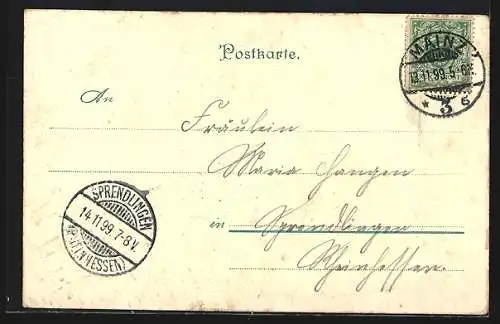 Postkarte.
MAINZ
13.11.99.5-6N.
* 3 c
An
Fräulein
Maria Hangen
in Sprendlingen
Rheinhessen.
SPRENDLINGEN
14.11.99.7-8V.
(RHEINHESSEN)